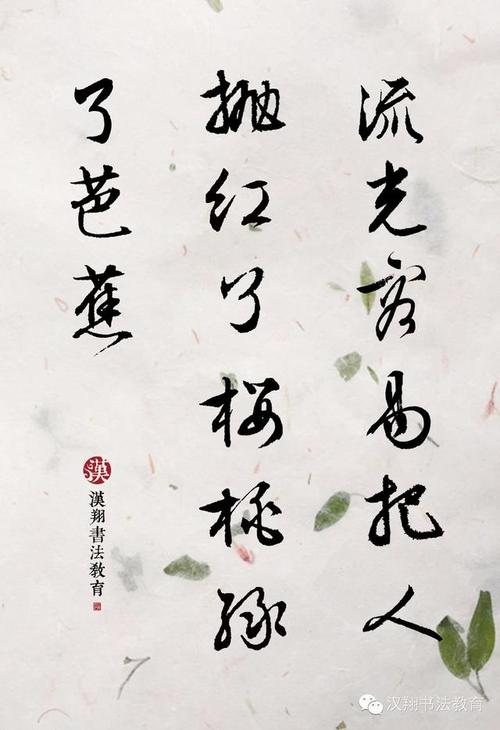 流光容易把人
抛红了樱桃绿
了芭蕉
漢
漢翔書法教育
汉翔书法教育